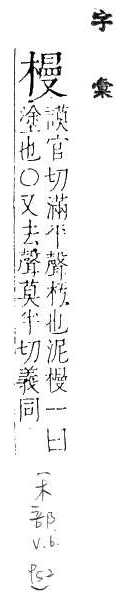 字彙
槾
謨官切滿平聲杇也泥槾一曰
塗也○又去聲莫半切義同
(木部 v.6. p52)